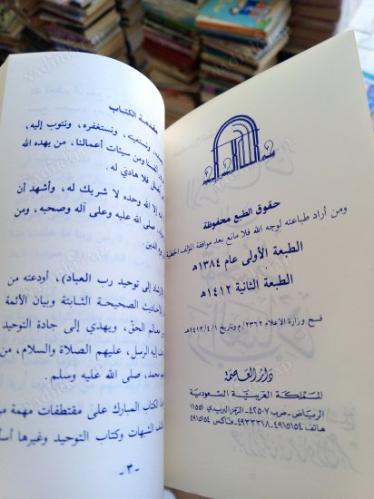 حقوق الطبع محفوظة
ومن أراد طباعته لوجه الله فلا مانع بعد موافقة المؤلف الخطية
الطبعة الأولى عام ١٣٨٤هـ
الطبعة الثانية ١٤١٢هـ
فسح وزارة الاعلام ٢٣٦٢ / م وتاريخ ١٤١٢/٤/١هـ
دار العاصمة
المملكة العربية السعودية
الرياض - ص ب ٤٢٥٠٧ - الرمز البريدي ١١٥٥١
هاتف ٤٩١٥١٥٤ - ٤٩٣٣٣١٨ - فاكس ٤٩١٥١٥٤
مقدمة الكتاب
ونستعينه، ونستغفره، ونتوب إليه،
أنفسنا ومن سيئات أعمالنا، من يهده الله
فلا هادي له.
إلا الله وحده لا شريك له، وأشهد أن
صلى الله عليه وعلى آله وصحبه، ومن
الدين.
إلى توحيد رب العباد)، أودعته من
الأحاديث الصحيحة الثابتة وبيان الأئمة
معالم الحق، ويهدي إلى جادة التوحيد
إليه الرسل، عليهم الصلاة والسلام، من
محمد، صلى الله عليه وسلم.
الكتاب المبارك على مقتطفات مهمة من
الشبهات وكتاب التوحيد وغيرها
-٣-